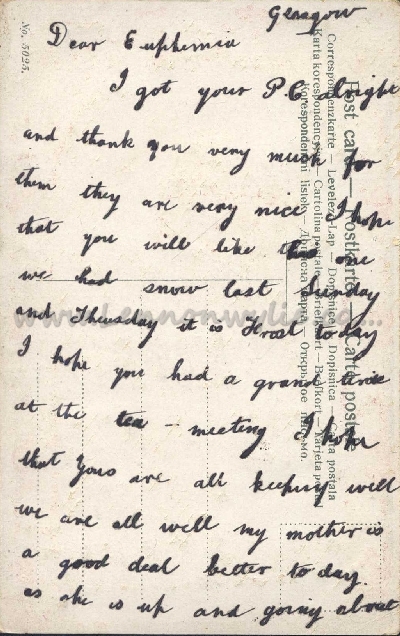 Glasgow
Dear Euphemia
I got your P.C. alright
and thank you very much for
them they are very nice I hope
that you will like this one
we had snow last Sunday
and Thursday it is Frost to day
I hope you had a grand time
at the tea - meeting I hope
that Yous are all keeping well
we are all well my mother is
a good deal better to day.
as she is up and going about
No. 5025.
Post card — Postkarte — Carte postale
Correspondenzkarte — Levelező-Lap — Dopisnice — Dopisnica — Karta postala
Karta korespondencyjna — Cartolina postale — Briefkaart — Brefkort — Tarjeta postal
Korespondenční lístek — Открытое письмо.